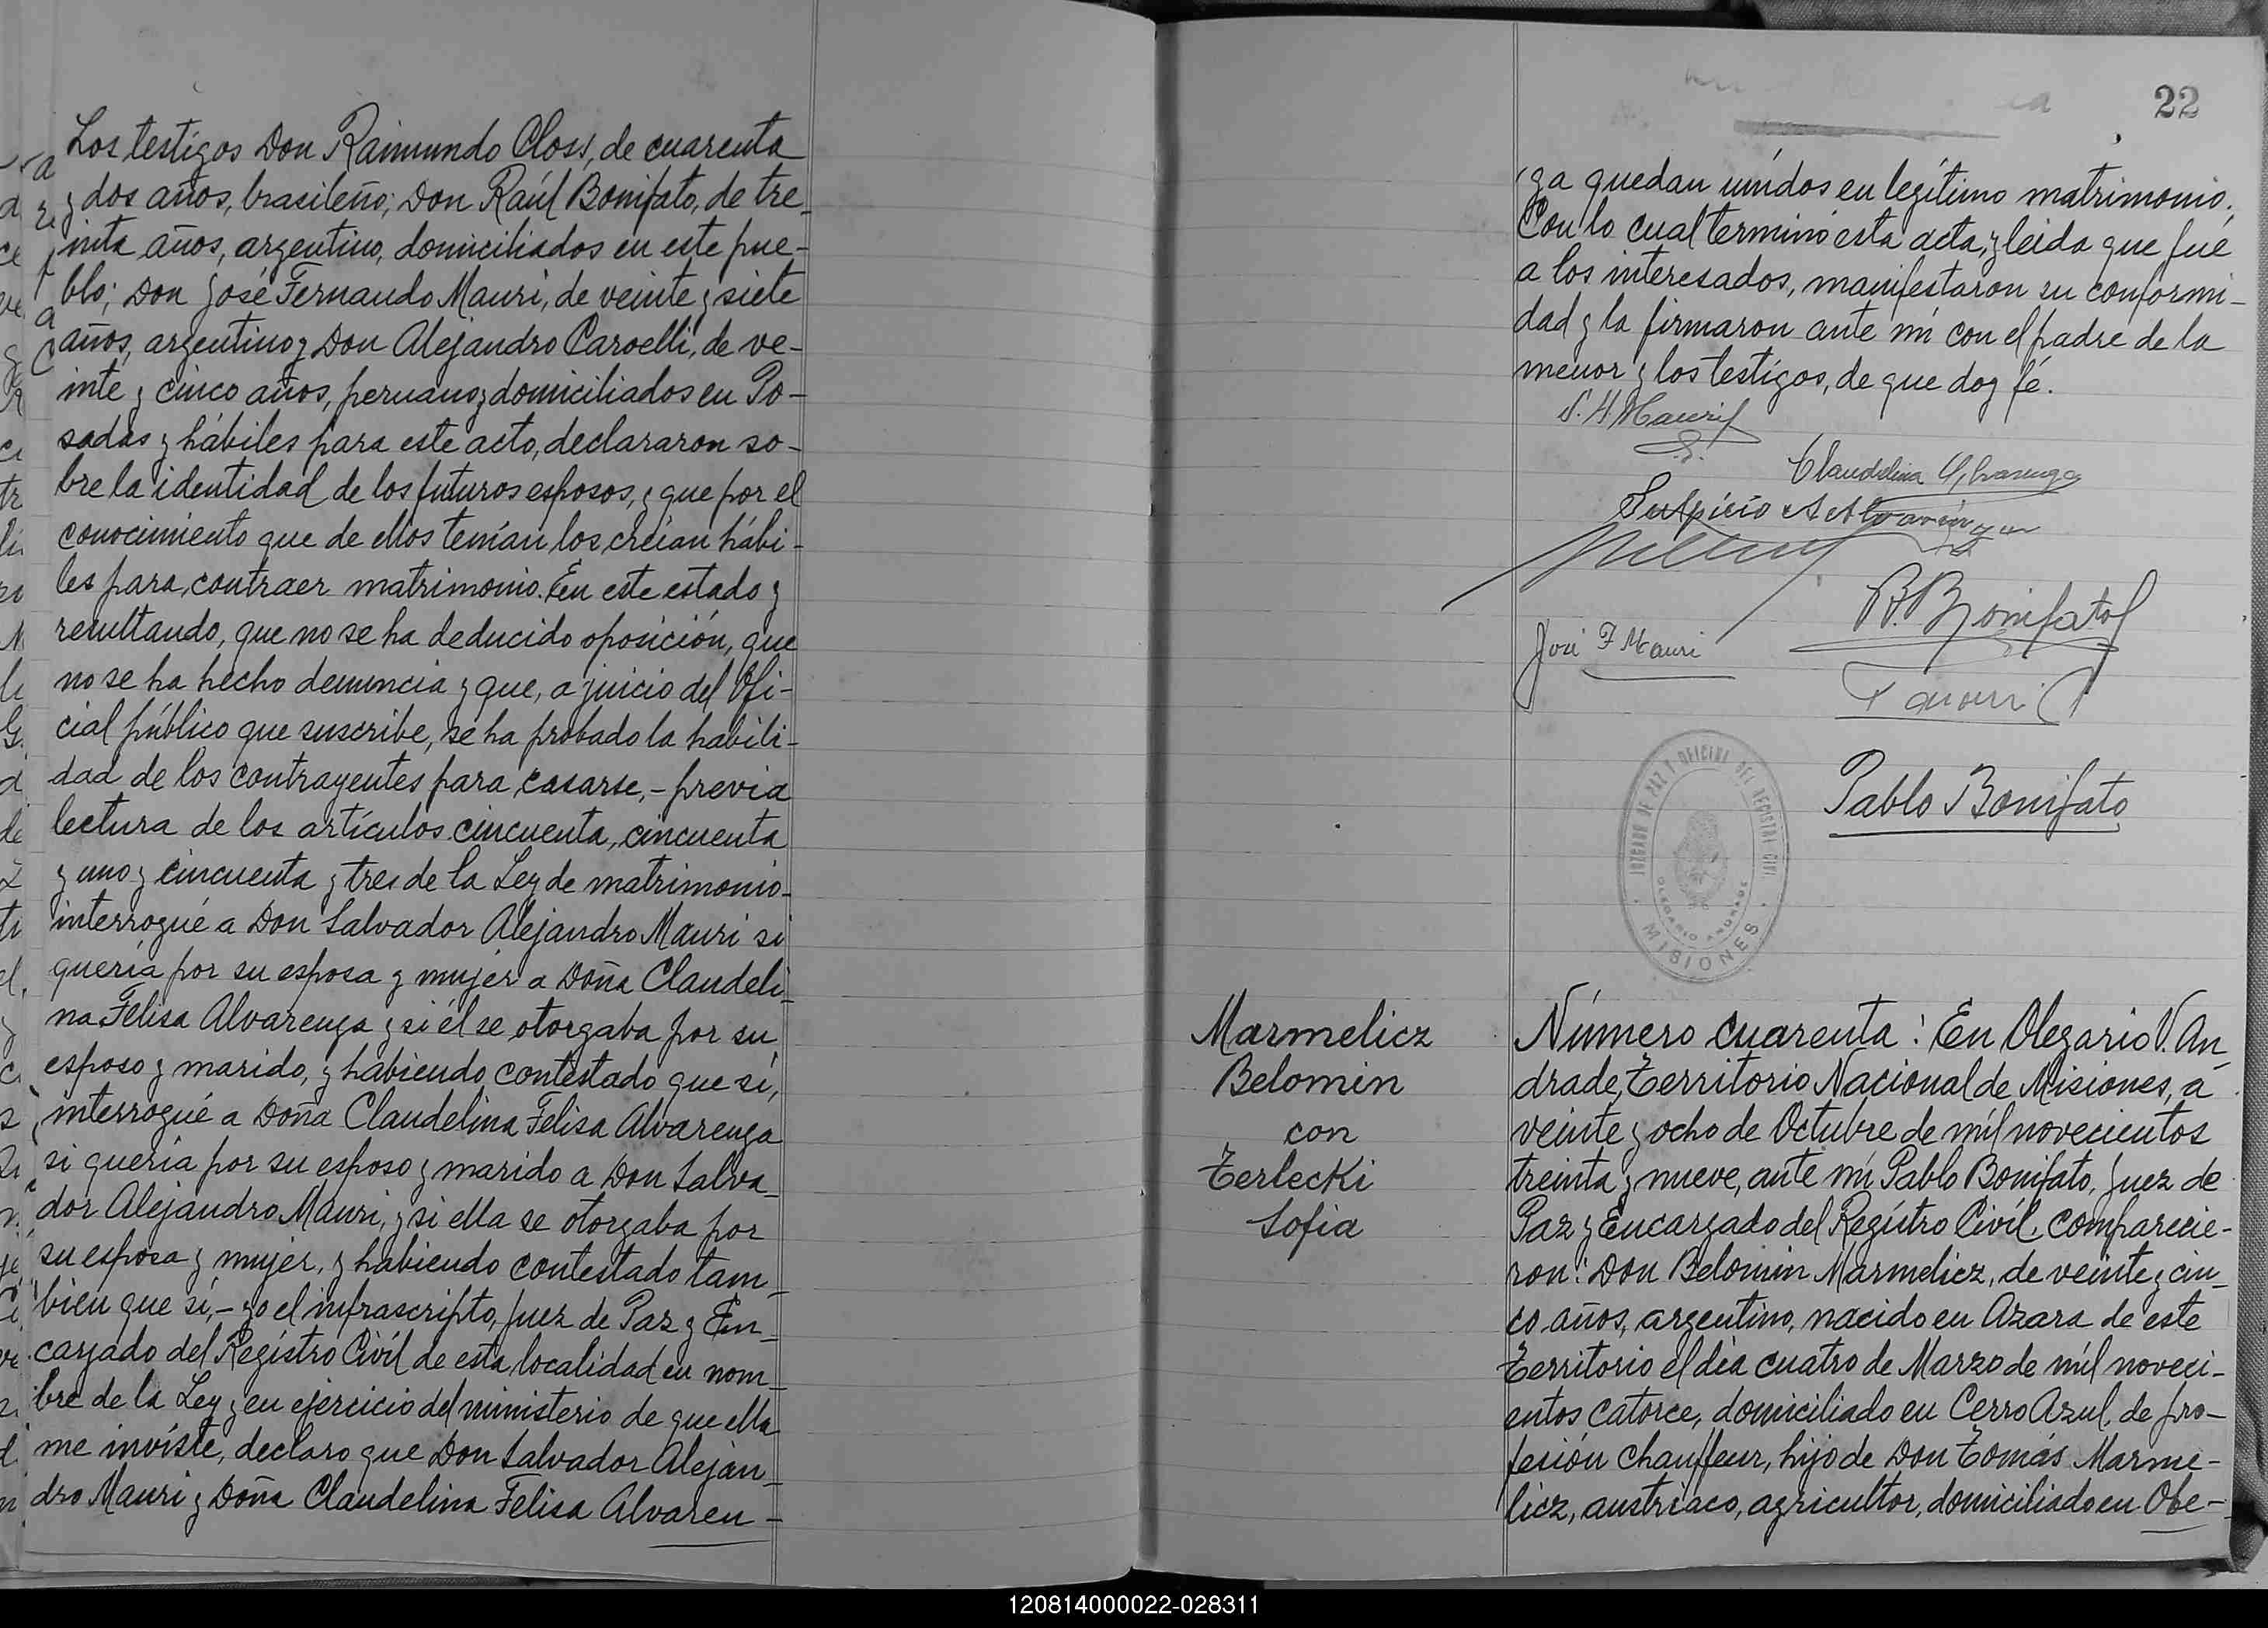 Los testigos Don Raimundo Closs, de cuarenta
y dos años, brasileño; Don Raúl Bonifato, de tre-
inta años, argentino, domiciliados en este pue-
blo; Don José Fernando Mauri, de veinte y siete
años, argentino y Don Alejandro Caroelli, de ve-
inte y cinco años, peruano y domiciliados en Po-
sadas y hábiles para este acto, declararon so-
bre la identidad de los futuros esposos, y que por el
conocimiento que de ellos tenían los creían hábi-
les para contraer matrimonio. En este estado y
resultando, que no se ha deducido oposición, que
no se ha hecho denuncia y que, a juicio del Ofi-
cial público que suscribe, se ha probado la habili-
dad de los contrayentes para casarse, - previa
lectura de los artículos cincuenta, cincuenta
y uno y cincuenta y tres de la Ley de matrimonio-
interrogué a Don Salvador Alejandro Mauri si
quería por su esposa y mujer a Doña Claudeli-
na Felisa Alvarenga y si él se otorgaba por su
esposo y marido, y habiendo contestado que sí,
interrogué a Doña Claudelina Felisa Alvarenga
si quería por su esposo y marido a Don Salva-
dor Alejandro Mauri, y si ella se otorgaba por
su esposa y mujer, y habiendo contestado tam-
bien que sí, - yo el infrascripto, Juez de Paz y En-
cargado del Registro Civil de esta localidad en nom-
bre de la Ley y en ejercicio del ministerio de que ella
me inviste, declaro que Don Salvador Alejan-
dro Mauri y Doña Claudelina Felisa Alvaren-
22
ga quedan unidos en legítimo matrimonio.
Con lo cual terminó esta acta, y leida que fué
a los interesados, manifestaron su conformi-
dad y la firmaron ante mí con el padre de la
menor y los testigos, de que doy fé.
S. A. Mauri
Claudelina Alvarenga
Sulpicio Alvarenga
José F Mauri
R. Bonifato
Pablo Bonifato
JUZGADO DE PAZ Y OFICINA DEL REGISTRO CIVIL
OLEGARIO ANDRADE
MISIONES
Marmelicz
Belomin
con
Terlecki
Sofia
Número cuarenta: En Olegario V. An-
drade, Territorio Nacional de Misiones, a
veinte y ocho de Octubre de mil novecientos
treinta y nueve, ante mí Pablo Bonifato, Juez de
Paz y Encargado del Registro Civil, comparecie-
ron: Don Belomin Marmelicz, de veinte y cin-
co años, argentino, nacido en Azara de este
Territorio el día cuatro de Marzo de mil noveci-
entos catorce, domiciliado en Cerro Azul, de pro-
fesión chauffeur, hijo de Don Tomás Marme-
licz, austriaco, agricultor, domiciliado en Obe-
120814000022-028311